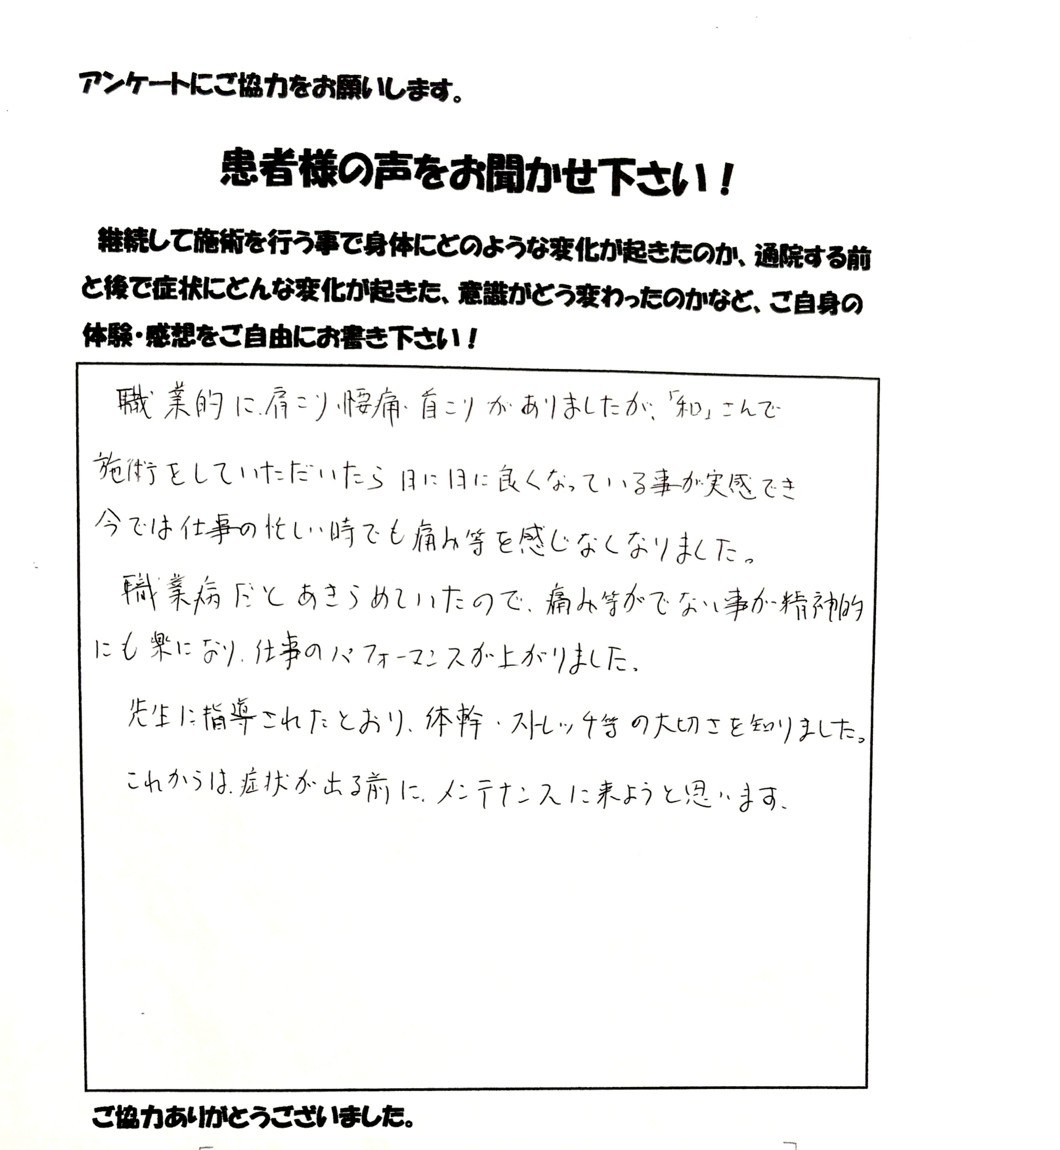 アンケートにご協力をお願いします。
患者様の声をお聞かせ下さい！
継続して施術を行う事で身体にどのような変化が起きたのか、通院する前
と後で症状にどんな変化が起きた、意識がどう変わったのかなど、ご自身の
体験・感想をご自由にお書き下さい！
職業的に、肩こり、腰痛、首こりがありましたが、「和」さんで
施術をしていただいたら日に日に良くなっている事が実感でき
今では仕事の忙しい時でも痛み等を感じなくなりました。
職業病だとあきらめていたので、痛み等がでない事が精神的
にも楽になり、仕事のパフォーマンスが上がりました。
先生に指導されたとおり、体幹・ストレッチ等の大切さを知りました。
これからは、症状が出る前に、メンテナンスに来ようと思います。
ご協力ありがとうございました。